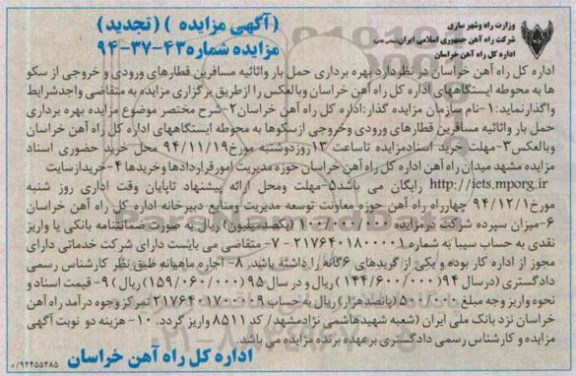 (آگهی مزایده ) (تجدید)
مزایده شماره ۴۳-۳۷-۹۴
وزارت راه وشهر سازی
شرکت راه آهن جمهوری اسلامی ایران
اداره کل راه آهن خراسان
اداره کل راه آهن خراسان در نظردارد بهره برداری حمل بار واثاثیه مسافرین قطارهای ورودی و خروجی از سکو
ها به محوطه ایستگاههای اداره کل راه آهن خراسان وبالعکس را ازطریق برگزاری مزایده به متقاضی واجدشرایط
واگذارنماید:۱-نام سازمان مزایده گذار:اداره کل راه آهن خراسان۲-شرح مختصر موضوع مزایده بهره برداری
حمل بار واثاثیه مسافرین قطارهای ورودی وخروجی ازسکوها به محوطه ایستگاههای اداره کل راه آهن خراسان
وبالعکس۳-مهلت خرید اسنادمزایده تاساعت ۱۳روزدوشنبه مورخ۹۴/۱۱/۱۹ محل خرید حضوری اسناد
مزایده مشهد میدان راه آهن اداره کل راه آهن خراسان حوزه مدیریت امورقراردادها وخریدها ۴-خریدازسایت
http://iets.mporg.ir رایگان می باشد۵-مهلت ومحل ارائه پیشنهاد تاپایان وقت اداری روز شنبه
مورخ۹۴/۱۲/۱ چهارراه راه آهن حوزه معاونت توسعه مدیریت ومنابع دبیرخانه اداره کل راه آهن خراسان
۶-میزان سپرده شرکت درمزایده ۱۰۰/۰۰۰/۰۰۰ (یکصدمیلیون) ریال به صورت ضمانتنامه بانکی یا واریز
نقدی به حساب سیبا به شماره ۲۱۷۶۴۰۱۸۰۰۰۰۱ ۷- متقاضی می بایست دارای شرکت خدماتی دارای
مجوز از اداره کار بوده و یکی از گریدهای ۶گانه را داشته باشد. ۸- اجاره ماهیانه طبق نظر کارشناس رسمی
دادگستری (درسال ۹۴ (۱۴۴/۶۰۰/۰۰۰)ریال و در سال ۹۵ (۱۵۹/۰۶۰/۰۰۰)ریال) ۹- قیمت اسناد و
نحوه واریز وجه مبلغ ۵۰۰/۰۰۰ (پانصدهزار) ریال به حساب ۲۱۷۶۴۰۱۷۰۰۶۰۹ تمرکز وجوه درآمد راه آهن
خراسان نزد بانک ملی ایران (شعبه شهیدهاشمی نژادمشهد) کد ۸۵۱۱ واریز گردد. ۱۰- هزینه دو نوبت آگهی
مزایده و کارشناس رسمی دادگستری برعهده برنده مزایده می باشد.
اداره کل راه آهن خراسان
۰/۹۴۴۵۵۴۸۵